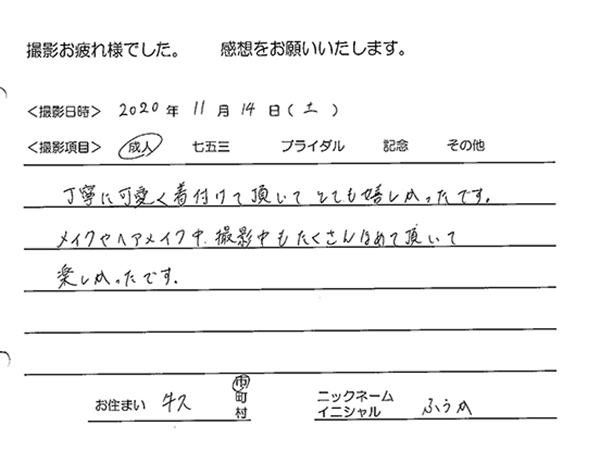 撮影お疲れ様でした。 感想をお願いいたします。
<撮影日時> 2020年 11月 14日(土)
<撮影項目> 成人 七五三 ブライダル 記念 その他
丁寧に可愛く着付けて頂いてとても嬉しかったです。
メイクやヘアメイク中、撮影中もたくさんほめて頂いて
楽しかったです。
お住まい 牛久 市町村 ニックネーム イニシャル ふうか